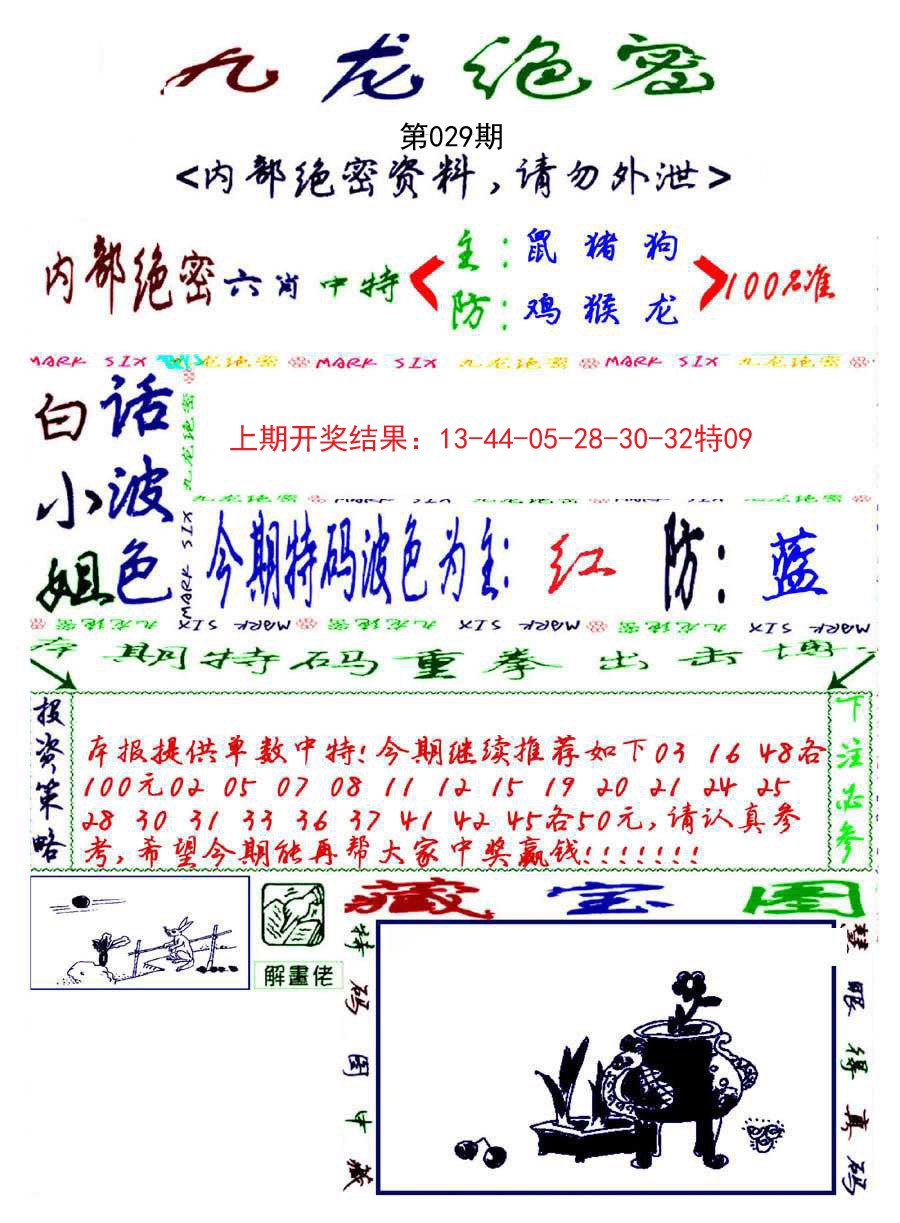 九龙绝密
第029期
<内部绝密资料,请勿外泄>
内部绝密六肖中特
主:鼠 猪 狗
防:鸡 猴 龙
100%准
MARK SIX 九龙绝密 MARK SIX 九龙绝密 MARK SIX 九龙绝密
白小姐
话波色
九龙绝密
MARK SIX
上期开奖结果：13-44-05-28-30-32特09
九龙绝密 MARK SIX 九龙绝密 MARK SIX 九龙绝密
今期特码波色为主:红 防:蓝
MARK SIX 九龙绝密 MARK SIX 九龙绝密 MARK SIX 九龙绝密 MARK SIX
本期特码重拳出击博
投资策略
本报提供单数中特!今期继续推荐如下03 16 48各
100元02 05 07 08 11 12 15 19 20 21 24 25
28 30 31 33 36 37 41 42 45各50元,请认真参
考,希望今期能再帮大家中奖赢钱!!!!!!!
下注必参
解畫佬
藏宝图
特码图中藏
慧眼得真码